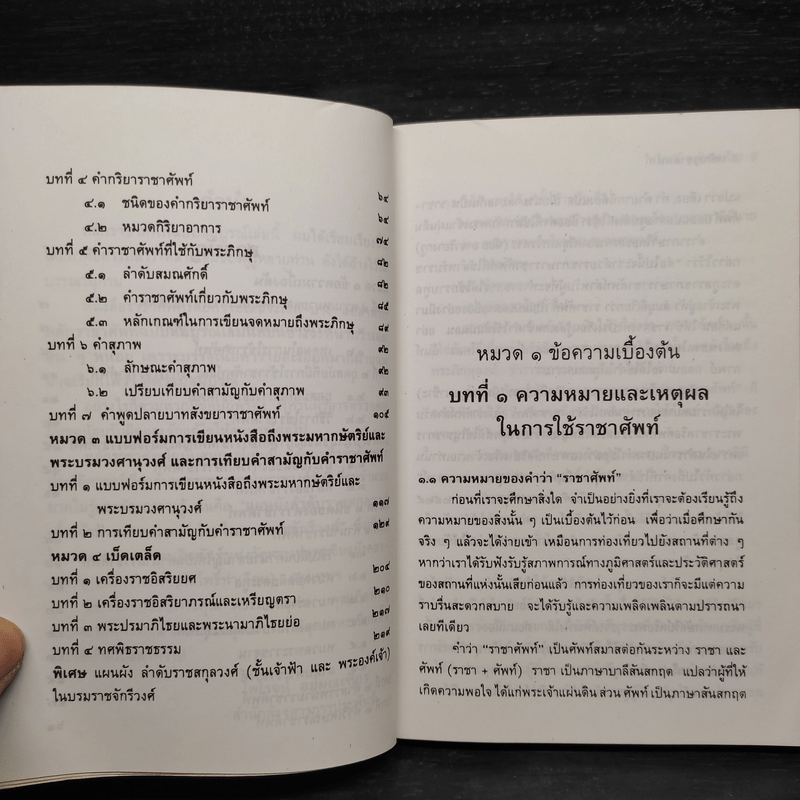 บทที่ ๔ คำกริยาราชาศัพท์ ๖๔
๔.๑ ชนิดของคำกริยาราชาศัพท์ ๖๔
๔.๒ หมวดกิริยาอาการ ๗๔
บทที่ ๕ คำราชาศัพท์ที่ใช้กับพระภิกษุ ๘๒
๕.๑ ลำดับสมณศักดิ์ ๘๒
๕.๒ คำราชาศัพท์เกี่ยวกับพระภิกษุ ๘๕
๕.๓ หลักเกณฑ์ในการเขียนจดหมายถึงพระภิกษุ ๘๙
บทที่ ๖ คำสุภาพ ๙๒
๖.๑ ลักษณะคำสุภาพ ๙๒
๖.๒ เปรียบเทียบคำสามัญกับคำสุภาพ ๙๓
บทที่ ๗ คำพูดปลายบาทสังขยาราชาศัพท์ ๑๐๕
หมวด ๓ แบบฟอร์มการเขียนหนังสือถึงพระมหากษัตริย์และ
พระบรมวงศานุวงศ์ และการเทียบคำสามัญกับคำราชาศัพท์
บทที่ ๑ แบบฟอร์มการเขียนหนังสือถึงพระมหากษัตริย์และ
พระบรมวงศานุวงศ์ ๑๑๗
บทที่ ๒ การเทียบคำสามัญกับคำราชาศัพท์ ๑๒๙
หมวด ๔ เบ็ดเตล็ด
บทที่ ๑ เครื่องราชอิสริยยศ ๒๐๔
บทที่ ๒ เครื่องราชอิสริยาภรณ์และเหรียญตรา ๒๑๐
บทที่ ๓ พระปรมาภิไธยและพระนามาภิไธยย่อ ๒๑๗
บทที่ ๔ ทศพิธราชธรรม ๒๑๙
พิเศษ แผนผัง ลำดับราชสกุลวงศ์ (ชั้นเจ้าฟ้า และ พระองค์เจ้า)
ในบรมราชจักรีวงศ์
หมวด ๑ ข้อความเบื้องต้น
บทที่ ๑ ความหมายและเหตุผล
ในการใช้ราชาศัพท์
๑.๑ ความหมายของคำว่า “ราชาศัพท์”
ก่อนที่เราจะศึกษาสิ่งใด จำเป็นอย่างยิ่งที่เราจะต้องเรียนรู้ถึง
ความหมายของสิ่งนั้น ๆ เป็นเบื้องต้นไว้ก่อน เพื่อว่าเมื่อศึกษากัน
จริง ๆ แล้วจะได้ง่ายเข้า เหมือนการท่องเที่ยวไปยังสถานที่ต่าง ๆ
หากว่าเราได้รับฟังรับรู้สภาพการณ์ทางภูมิศาสตร์และประวัติศาสตร์
ของสถานที่แห่งนั้นเสียก่อนแล้ว การท่องเที่ยวของเราก็จะมีแต่ความ
ราบรื่นสะดวกสบาย จะได้รับรู้และความเพลิดเพลินตามปรารถนา
เลยทีเดียว
คำว่า “ราชาศัพท์” เป็นศัพท์สมาสต่อกันระหว่าง ราชา และ
ศัพท์ (ราชา + ศัพท์) ราชา เป็นภาษาบาลีสันสกฤต แปลว่าผู้ที่ให้
เกิดความพอใจ ได้แก่พระเจ้าแผ่นดิน ส่วน ศัพท์ เป็นภาษาสันสกฤต